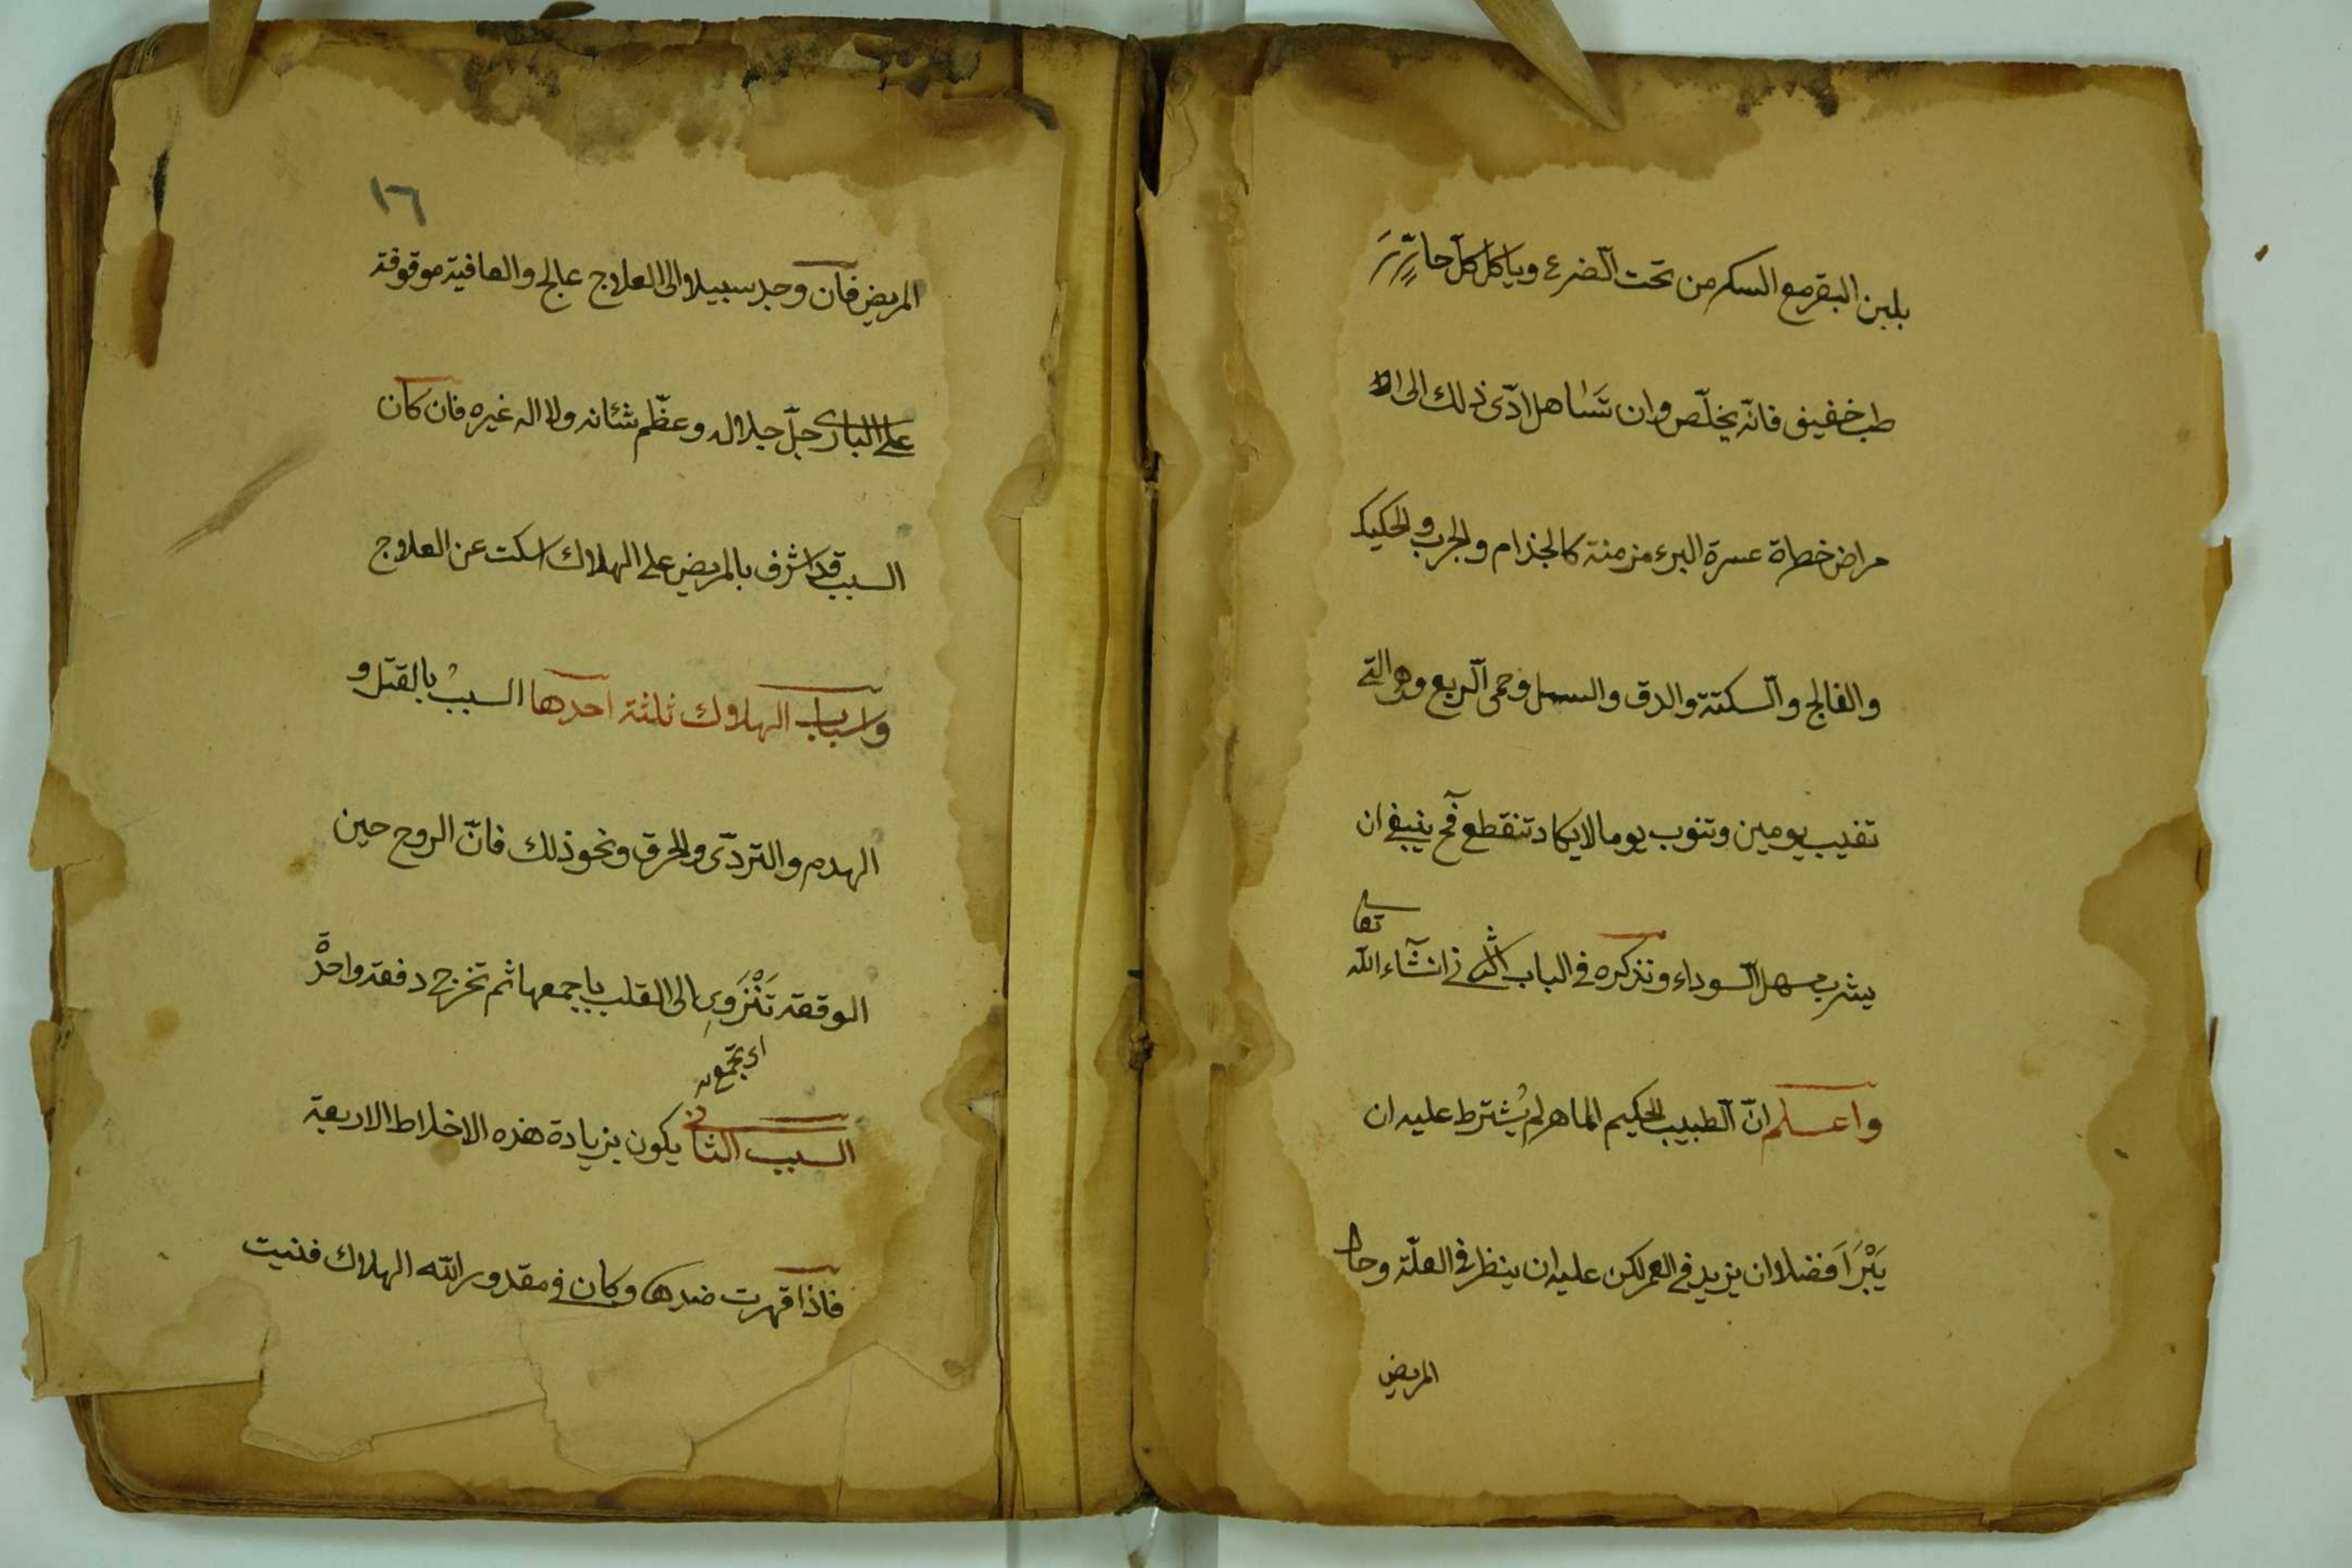 بلبن البقر مع السكر من تحت الضرع وياكل كلّ حارّ
طب خفيف فانّه يخلّص وان تساهل ادّى ذلك الى الا
مراض خطاة عسرة البرء مزمنة كالجذام والجرب والحكيك
والفالج والسكتة والدق والسل وحمى الربع وهو التى
تغيب يومين وتنوب يوما لايكاد تنقطع فح ينبغى ان
يشرب مسهل السوداء ونذكره فى الباب الثانى انشآء الله
تعا
واعلم انّ الطبيب الحكيم الماهر لم يُشترط عليه ان
يَبْرَأَ فضلا وان يزيد فى العمر لكن عليه ان ينظر فى العلّة وحال
المريض
١٦
المريض فان وجد سبيلا الى العلاج عالج والعافية موقوفة
على البارى جلّ جلاله وعظّم شئانه ولا اله غيره فان كان
السبب قد اشرف بالمريض على الهلاك اسكت عن العلاج
واسباب الهلاك ثلثة احدها السبب بالقتل و
الهدم والتردّى والحرق ونحو ذلك فانّ الروح حين
الوقعة تَنْزَوِى الى القلب باجمعها ثم تخرج دفعة واحدة
اى تجمع
السبب الثانى يكون بزيادة هذه الاخلاط الاربعة
فاذا قهرت ضدها وكان فى مقدور الله الهلاك فنيت